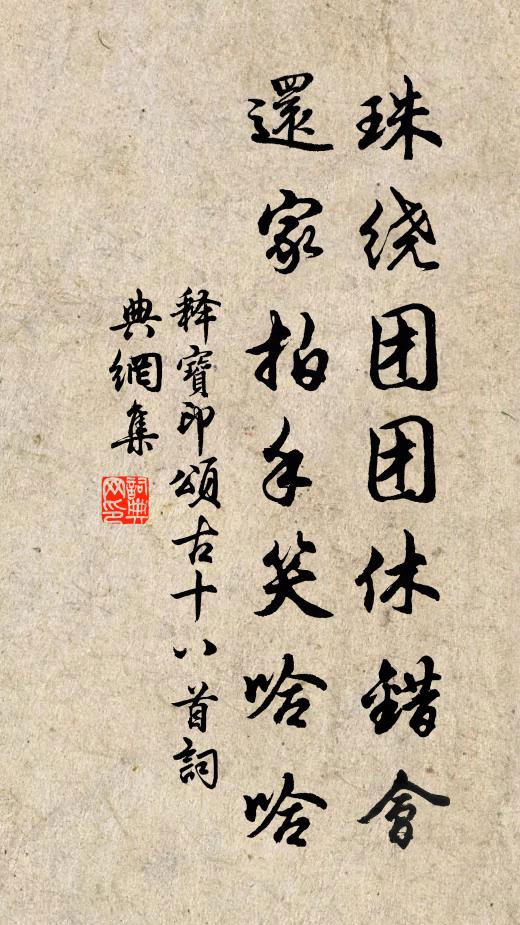 珠绕团团休錯會
還家拍手笑哈哈
释寶印頌古十八首詞
典網集
詞典
网印